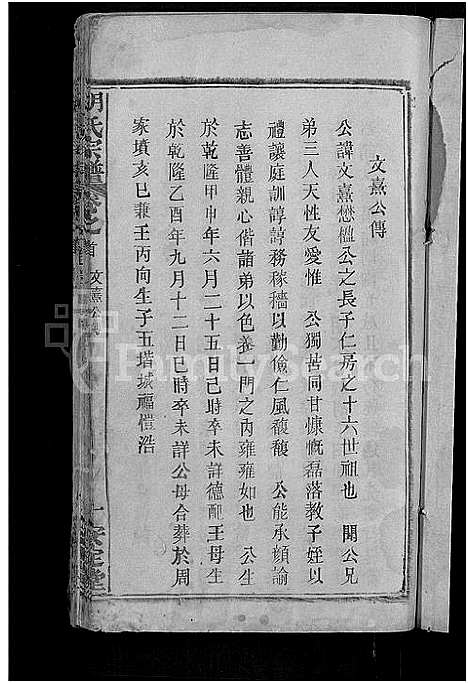 文熹公傳
公諱文熹懋楹公之長子仁房之十六世祖也 聞公兄
弟三人天性友愛惟 公獨苦同甘慷慨磊落教子姪以
禮讓庭訓諄諄務稼穡以勤儉仁風馥馥 公能承顔諭
志善體親心偕諸弟以色養一門之内雍雍如也 公生
於乾隆甲申年六月二十五日巳時卒未詳德配王母生
於乾隆乙酉年九月十二日巳時卒未詳公母合葬於周
家墳亥巳兼壬丙向生子五塔城福愷浩
胡氏宗譜卷之首 文熹公傳
FamilySearch